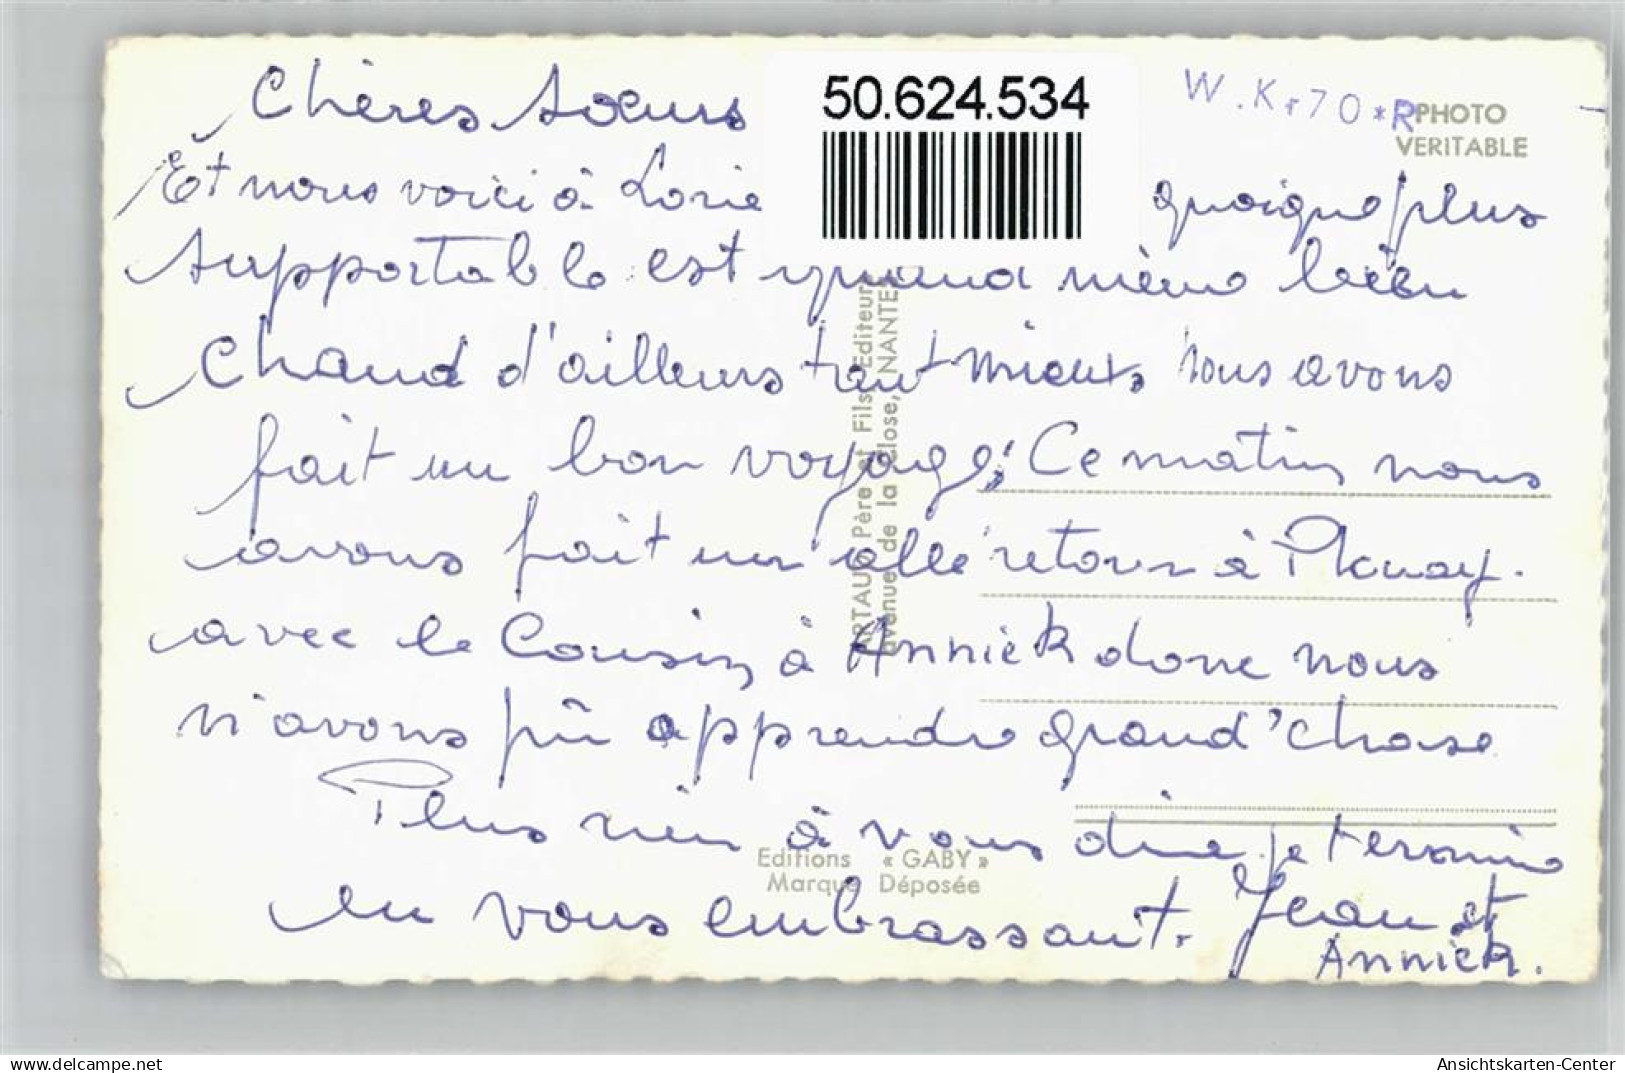 50.624.534
W.K.70*R
PHOTO
VERITABLE
Chères sœurs
Et nous voici à quoique plus
supportable est quand même bien
chaud d'ailleurs tant mieux nous avons
fait un bon voyage; Ce matin nous
avons fait un allé retour à
avec le Cousin à Annick donc nous
n'avons pû apprendre grand'chose
Plus rien à vous dire je termine
en vous embrassant. Jean et
Annick.
ARTAUD Père et Fils Editeurs
avenue de la Close, NANTES
Editions « GABY »
Marque Déposée
delcampe.net
Ansichtskarten-Center